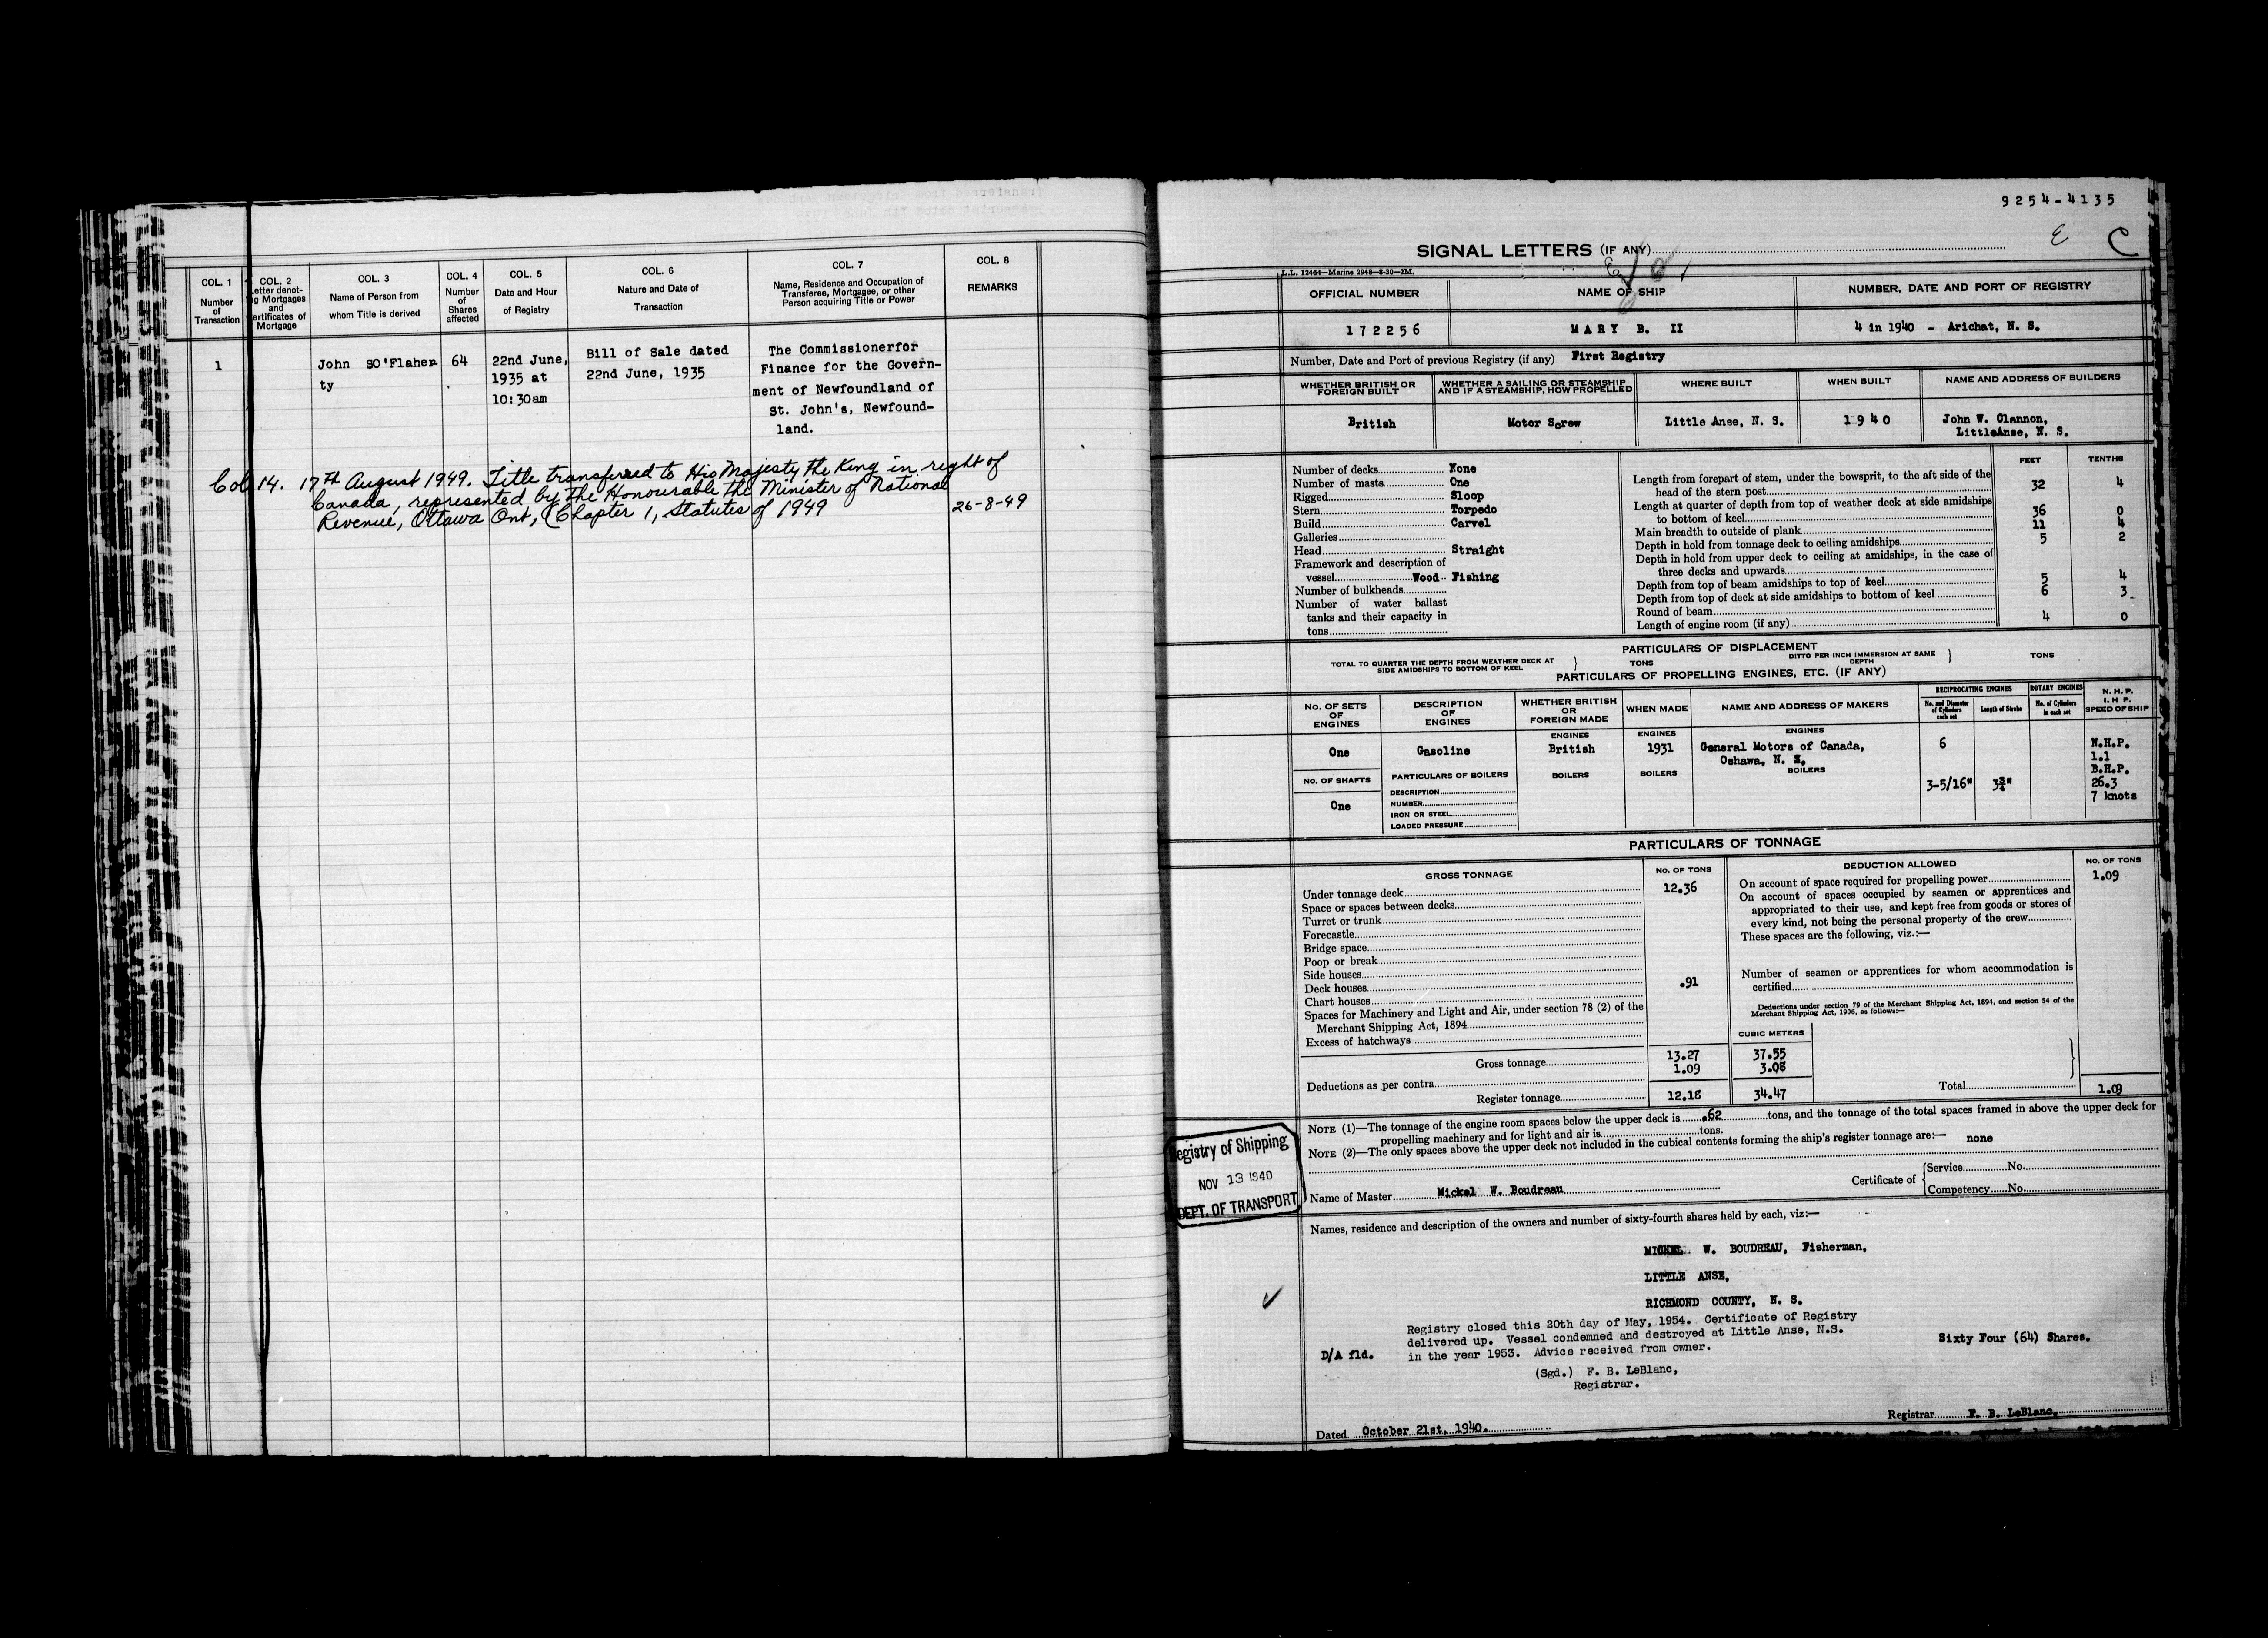 COL. 1
Number
of
Transaction
COL. 2
Letter denot-
ng Mortgages
and
ertificates of
Mortgage
COL. 3
Name of Person from
whom Title is derived
COL. 4
Number
of
Shares
affected
COL. 5
Date and Hour
of Registry
COL. 6
Nature and Date of
Transaction
COL. 7
Name, Residence and Occupation of
Transferee, Mortgagee, or other
Person acquiring Title or Power
COL. 8
REMARKS
1
John SO'Flaher
ty
64
22nd June,
1935 at
10:30am
Bill of Sale dated
22nd June, 1935
The Commissionerfor
Finance for the Govern-
ment of Newfoundland of
St. John's, Newfound-
land.
Col 14. 17th August 1949. Title transferred to His Majesty the King in right of
Canada, represented by the Honourable the Minister of National
Revenue, Ottawa Ont, (Chapter 1, Statutes of 1949
26-8-49
9254-4135
E C
SIGNAL LETTERS (IF ANY)
L.L. 12464—Marine 2948—8-30—2M.
OFFICIAL NUMBER
NAME OF SHIP
NUMBER, DATE AND PORT OF REGISTRY
172256
MARY B. II
4 in 1940 - Arichat, N. S.
Number, Date and Port of previous Registry (if any) First Registry
WHETHER BRITISH OR
FOREIGN BUILT
WHETHER A SAILING OR STEAMSHIP
AND IF A STEAMSHIP, HOW PROPELLED
WHERE BUILT
WHEN BUILT
NAME AND ADDRESS OF BUILDERS
British
Motor Screw
Little Anse, N. S.
1940
John W. Clannon,
LittleAnse, N. S.
Number of decks None
Number of masts One
Rigged Sloop
Stern Torpedo
Build Carvel
Galleries
Head Straight
Framework and description of
vessel Wood Fishing
Number of bulkheads
Number of water ballast
tanks and their capacity in
tons
FEET TENTHS
Length from forepart of stem, under the bowsprit, to the aft side of the
head of the stern post 32 4
Length at quarter of depth from top of weather deck at side amidships
to bottom of keel 36 0
Main breadth to outside of plank 11 4
Depth in hold from tonnage deck to ceiling amidships 5 2
Depth in hold from upper deck to ceiling at amidships, in the case of
three decks and upwards
Depth from top of beam amidships to top of keel 5 4
Depth from top of deck at side amidships to bottom of keel 6 3
Round of beam
Length of engine room (if any) 4 0
PARTICULARS OF DISPLACEMENT
TOTAL TO QUARTER THE DEPTH FROM WEATHER DECK AT
SIDE AMIDSHIPS TO BOTTOM OF KEEL
TONS
DITTO PER INCH IMMERSION AT SAME
DEPTH
TONS
PARTICULARS OF PROPELLING ENGINES, ETC. (IF ANY)
NO. OF SETS
OF
ENGINES
DESCRIPTION
OF
ENGINES
WHETHER BRITISH
OR
FOREIGN MADE
WHEN MADE
NAME AND ADDRESS OF MAKERS
RECIPROCATING ENGINES
No. and Diameter
of Cylinders
each set
Length of Stroke
ROTARY ENGINES
No. of Cylinders
in each set
N. H. P.
I. H. P.
SPEED OF SHIP
ENGINES
ENGINES
ENGINES
One
Gasoline
British
1931
General Motors of Canada,
Oshawa, N.
6
N.H.P.
1.1
B.H.P.
26.3
7 knots
3-5/16" 3¾"
NO. OF SHAFTS
One
PARTICULARS OF BOILERS
BOILERS
BOILERS
BOILERS
DESCRIPTION
NUMBER
IRON OR STEEL
LOADED PRESSURE
PARTICULARS OF TONNAGE
GROSS TONNAGE
NO. OF TONS
Under tonnage deck 12.36
Space or spaces between decks
Turret or trunk
Forecastle
Bridge space
Poop or break
Side houses
Deck houses .91
Chart houses
Spaces for Machinery and Light and Air, under section 78 (2) of the
Merchant Shipping Act, 1894
Excess of hatchways
DEDUCTION ALLOWED
NO. OF TONS
On account of space required for propelling power 1.09
On account of spaces occupied by seamen or apprentices and
appropriated to their use, and kept free from goods or stores of
every kind, not being the personal property of the crew
These spaces are the following, viz.:—
Number of seamen or apprentices for whom accommodation is
certified
Deductions under section 79 of the Merchant Shipping Act, 1894, and section 54 of the
Merchant Shipping Act, 1906, as follows:—
CUBIC METERS
Gross tonnage 13.27 37.55
Deductions as per contra 1.09 3.08
Register tonnage 12.18 34.47
Total 1.09
NOTE (1)—The tonnage of the engine room spaces below the upper deck is .62 tons, and the tonnage of the total spaces framed in above the upper deck for
propelling machinery and for light and air is tons.
NOTE (2)—The only spaces above the upper deck not included in the cubical contents forming the ship's register tonnage are:— none
Registry of Shipping
NOV 13 1940
DEPT. OF TRANSPORT
Name of Master Mickel W. Boudreau
Certificate of
Service No.
Competency No.
Names, residence and description of the owners and number of sixty-fourth shares held by each, viz:—
MICKEL W. BOUDREAU, Fisherman,
LITTLE ANSE,
RICHMOND COUNTY, N. S.
Registry closed this 20th day of May, 1954. Certificate of Registry
delivered up. Vessel condemned and destroyed at Little Anse, N.S.
in the year 1953. Advice received from owner.
D/A fld.
Sixty Four (64) Shares.
(Sgd.) F. B. LeBlanc,
Registrar.
Dated October 21st, 1940.
Registrar F. B. LeBlanc,